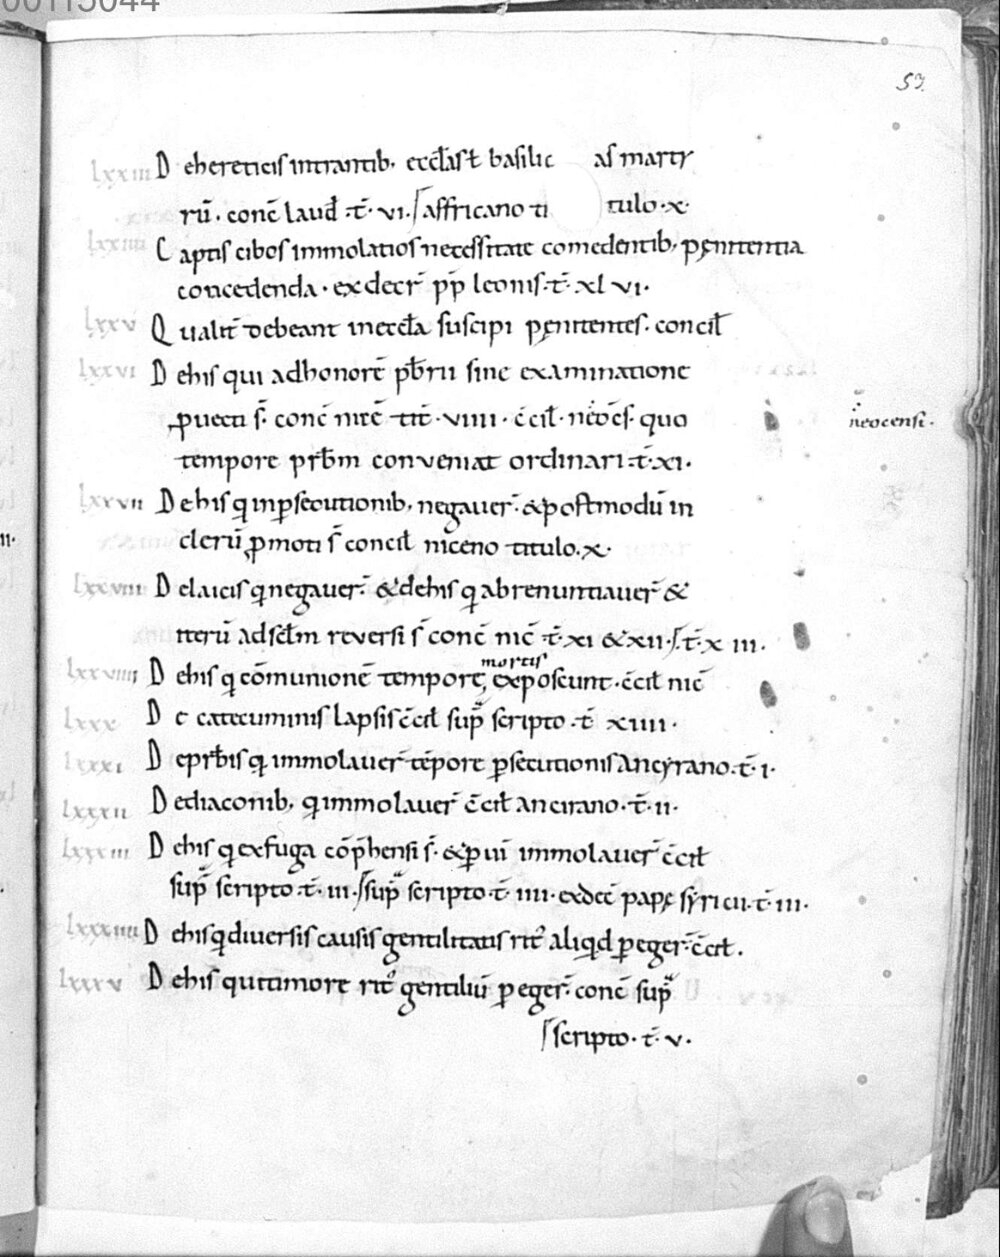 00115044
53.
lxxiii De hereticis intrantib; eccłas ł basilic as martÿ
rū · conc̄ laud̄ · t̄ · vi · affricano ti tulo · x ·
lxxiiii Captis cibos immolatios necessitate comedentib; pęnitentia
concedenda · ex decr̄ pp̄ leonis · t̄ · xl vi ·
lxxv Qualit̄ debeant in eccła suscipi pęnitentes · concil̄
lxxvi De his qui ad honorē pb̄rii sine examinatione
ꝓuecti s̄ · conc̄ nicē tit̄ · viiii · c̄cil̄ · neoc̄es · quo
neocensi ·
tempore prb̄m conveniat ordinari · t̄ · xi ·
lxxvii De his q̄ in ꝑsecutionib; negauer̄ · & postmodū in
clerū ꝓmoti s̄ concil̄ niceno titulo · x ·
lxxviii De laicis q̄ negauer̄ · & de his q̄ abrenuntiauer̄ &
iterū ad scl̄m reversi s̄ conc̄ nic̄ t̄ · xi & xii · t̄ · x iii ·
lxxviiii De his q̄ cōmunionē tempore mortis exposcunt · c̄cil̄ nic̄
lxxx De catecuminis lapsis c̄cil̄ sup̄ scripto · t̄ xiiii ·
lxxxi De prb̄is q̄ immolauer̄ tēpore ꝑsecutionis Ancyrano · t̄ · i ·
lxxxii De diaconib; q̄ immolauer̄ c̄cil̄ ancirano · t̄ · ii ·
lxxxiii De his q̄ ex fuga cōp̄hensi s̄ · & ꝑ uī immolauer̄ c̄cil̄
sup̄ scripto · t̄ · iii · sup̄ scripto · t̄ · iiii · ex dec̄ papę syricii · t̄ · iii ·
lxxxiiii De his q̄ diuersis causis gentilitatis rit̄ aliq̄d ꝑeger̄ · c̄cil̄ ·
lxxxv De his qui timore rit̄ gentiliū ꝑeger̄ · conc̄ sup̄
scripto · t̄ · v ·